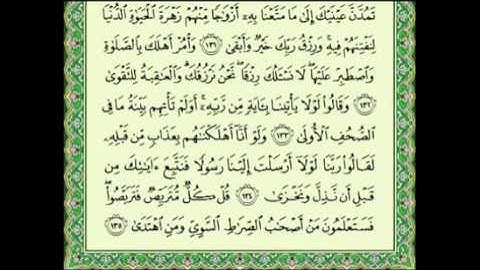 تَمُدَّنَّ عَيْنَيْكَ إِلَىٰ مَا مَتَّعْنَا بِهِۦٓ أَزْوَٰجًا مِّنْهُمْ زَهْرَةَ ٱلْحَيَوٰةِ ٱلدُّنْيَا
لِنَفْتِنَهُمْ فِيهِ ۚ وَرِزْقُ رَبِّكَ خَيْرٌ وَأَبْقَىٰ ١٣١ وَأْمُرْ أَهْلَكَ بِٱلصَّلَوٰةِ
وَٱصْطَبِرْ عَلَيْهَا ۖ لَا نَسْـَٔلُكَ رِزْقًا ۖ نَّحْنُ نَرْزُقُكَ ۗ وَٱلْعَٰقِبَةُ لِلتَّقْوَىٰ
١٣٢ وَقَالُوا۟ لَوْلَا يَأْتِينَا بِـَٔايَةٍ مِّن رَّبِّهِۦٓ ۚ أَوَلَمْ تَأْتِهِم بَيِّنَةُ مَا فِى
ٱلصُّحُفِ ٱلْأُولَىٰ ١٣٣ وَلَوْ أَنَّآ أَهْلَكْنَٰهُم بِعَذَابٍ مِّن قَبْلِهِۦ
لَقَالُوا۟ رَبَّنَا لَوْلَآ أَرْسَلْتَ إِلَيْنَا رَسُولًا فَنَتَّبِعَ ءَايَٰتِكَ مِن
قَبْلِ أَن نَّذِلَّ وَنَخْزَىٰ ١٣٤ قُلْ كُلٌّ مُّتَرَبِّصٌ فَتَرَبَّصُوا۟ ۖ
فَسَتَعْلَمُونَ مَنْ أَصْحَٰبُ ٱلصِّرَٰطِ ٱلسَّوِىِّ وَمَنِ ٱهْتَدَىٰ ١٣٥